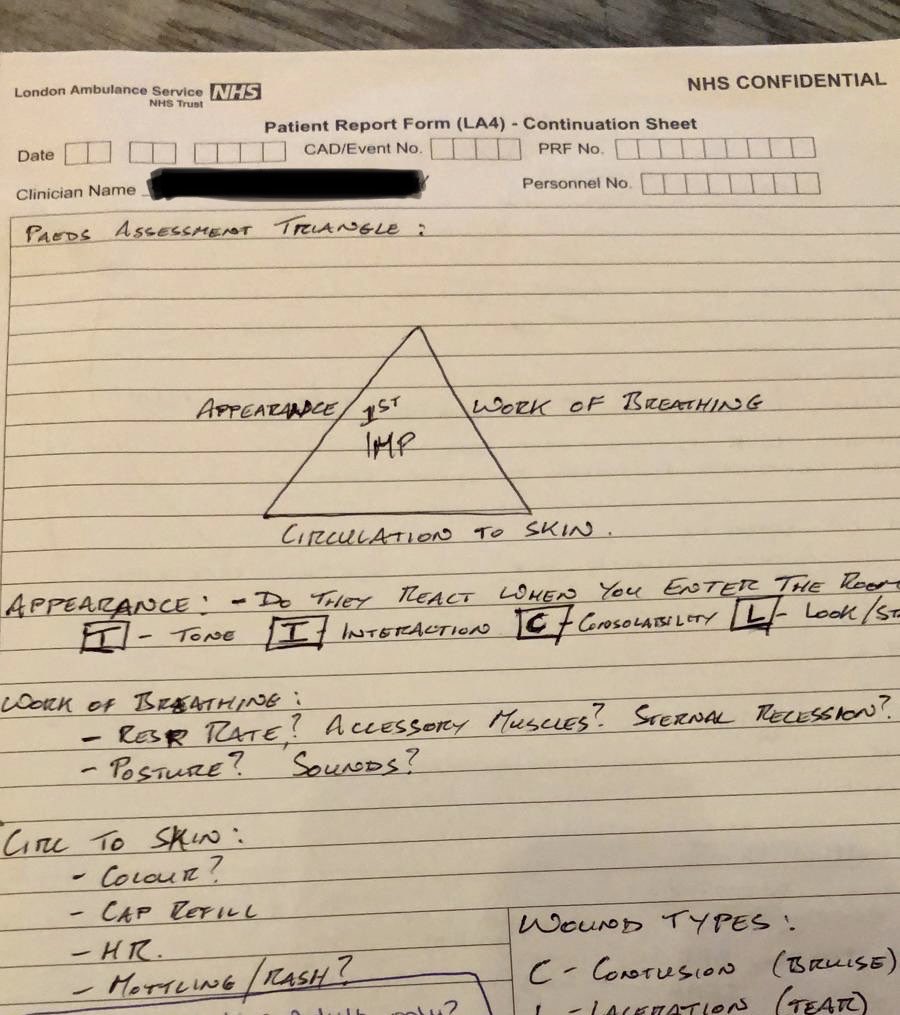 London Ambulance Service NHS
NHS Trust
NHS CONFIDENTIAL
Patient Report Form (LA4) - Continuation Sheet
Date CAD/Event No. PRF No.
Clinician Name Personnel No.
PAEDS ASSESSMENT TRIANGLE :
APPEARANCE 1ST WORK OF BREATHING
IMP
CIRCULATION TO SKIN.
APPEARANCE: - DO THEY REACT WHEN YOU ENTER THE ROOM
T - TONE I - INTERACTION C - CONSOLABILITY L - LOOK/
WORK OF BREATHING :
- RESP RATE? ACCESSORY MUSCLES? STERNAL RECESSION?
- POSTURE? SOUNDS?
CIRC TO SKIN :
- COLOUR?
- CAP REFILL
- HR.
- MOTTLING/RASH?
WOUND TYPES :
C - CONTUSION (BRUISE)
L - LACERATION (TEAR)
only?